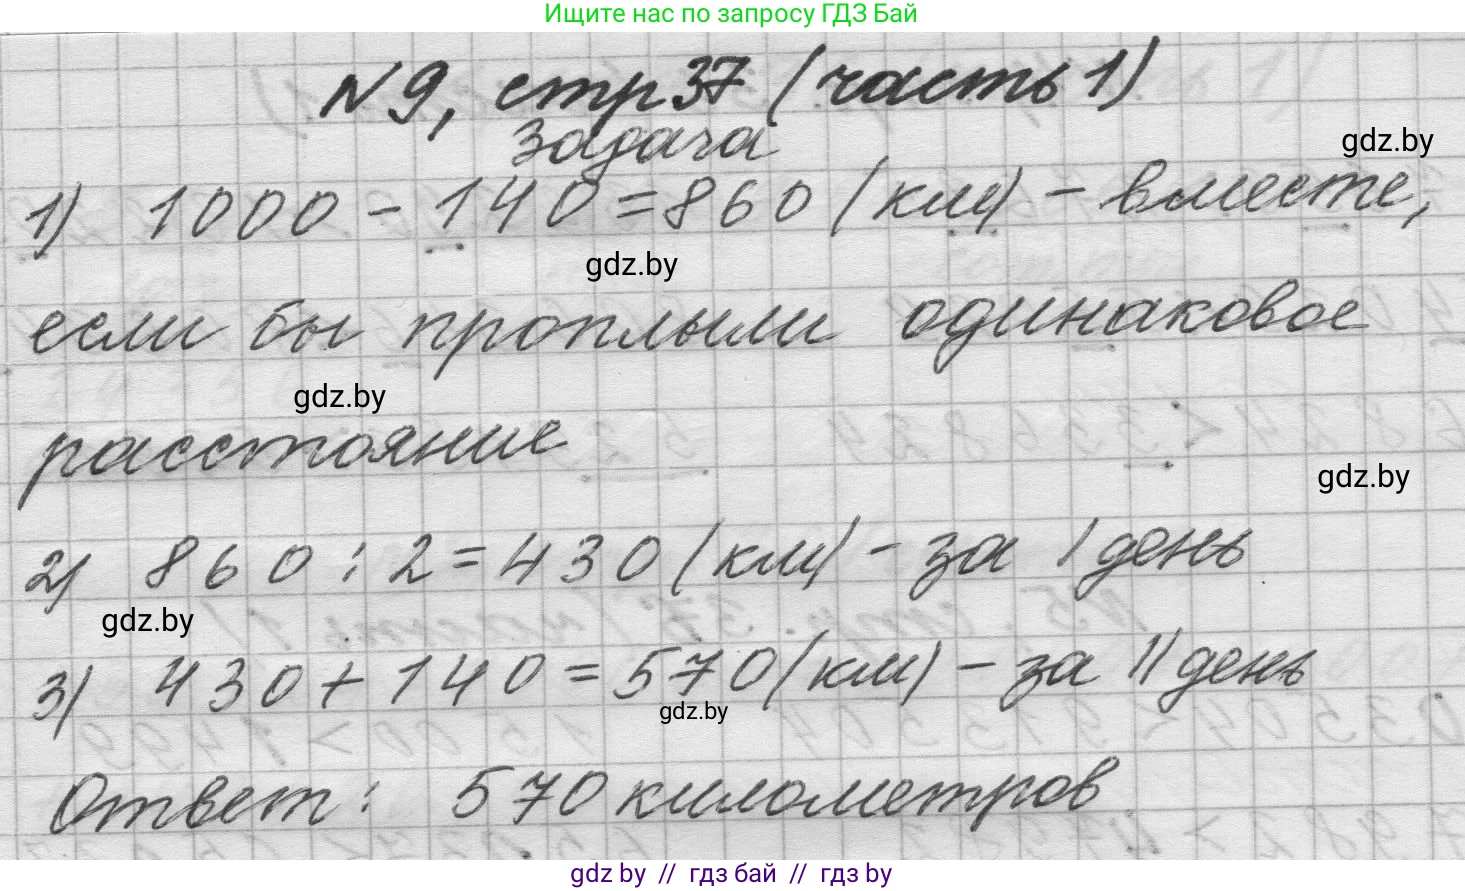 Ищите нас по запросу ГДЗ Бай
№9, стр 37 (часть 1)
Задача
gdz.by
1) 1000 - 140 = 860 (км) - вместе,
gdz.by
если бы проплыли одинаковое
gdz.by
расстояние
gdz.by
2) 860 : 2 = 430 (км) - за I день
gdz.by
3) 430 + 140 = 570 (км) - за II день
gdz.by
Ответ: 570 километров
gdz by // гдз бай // гдз by